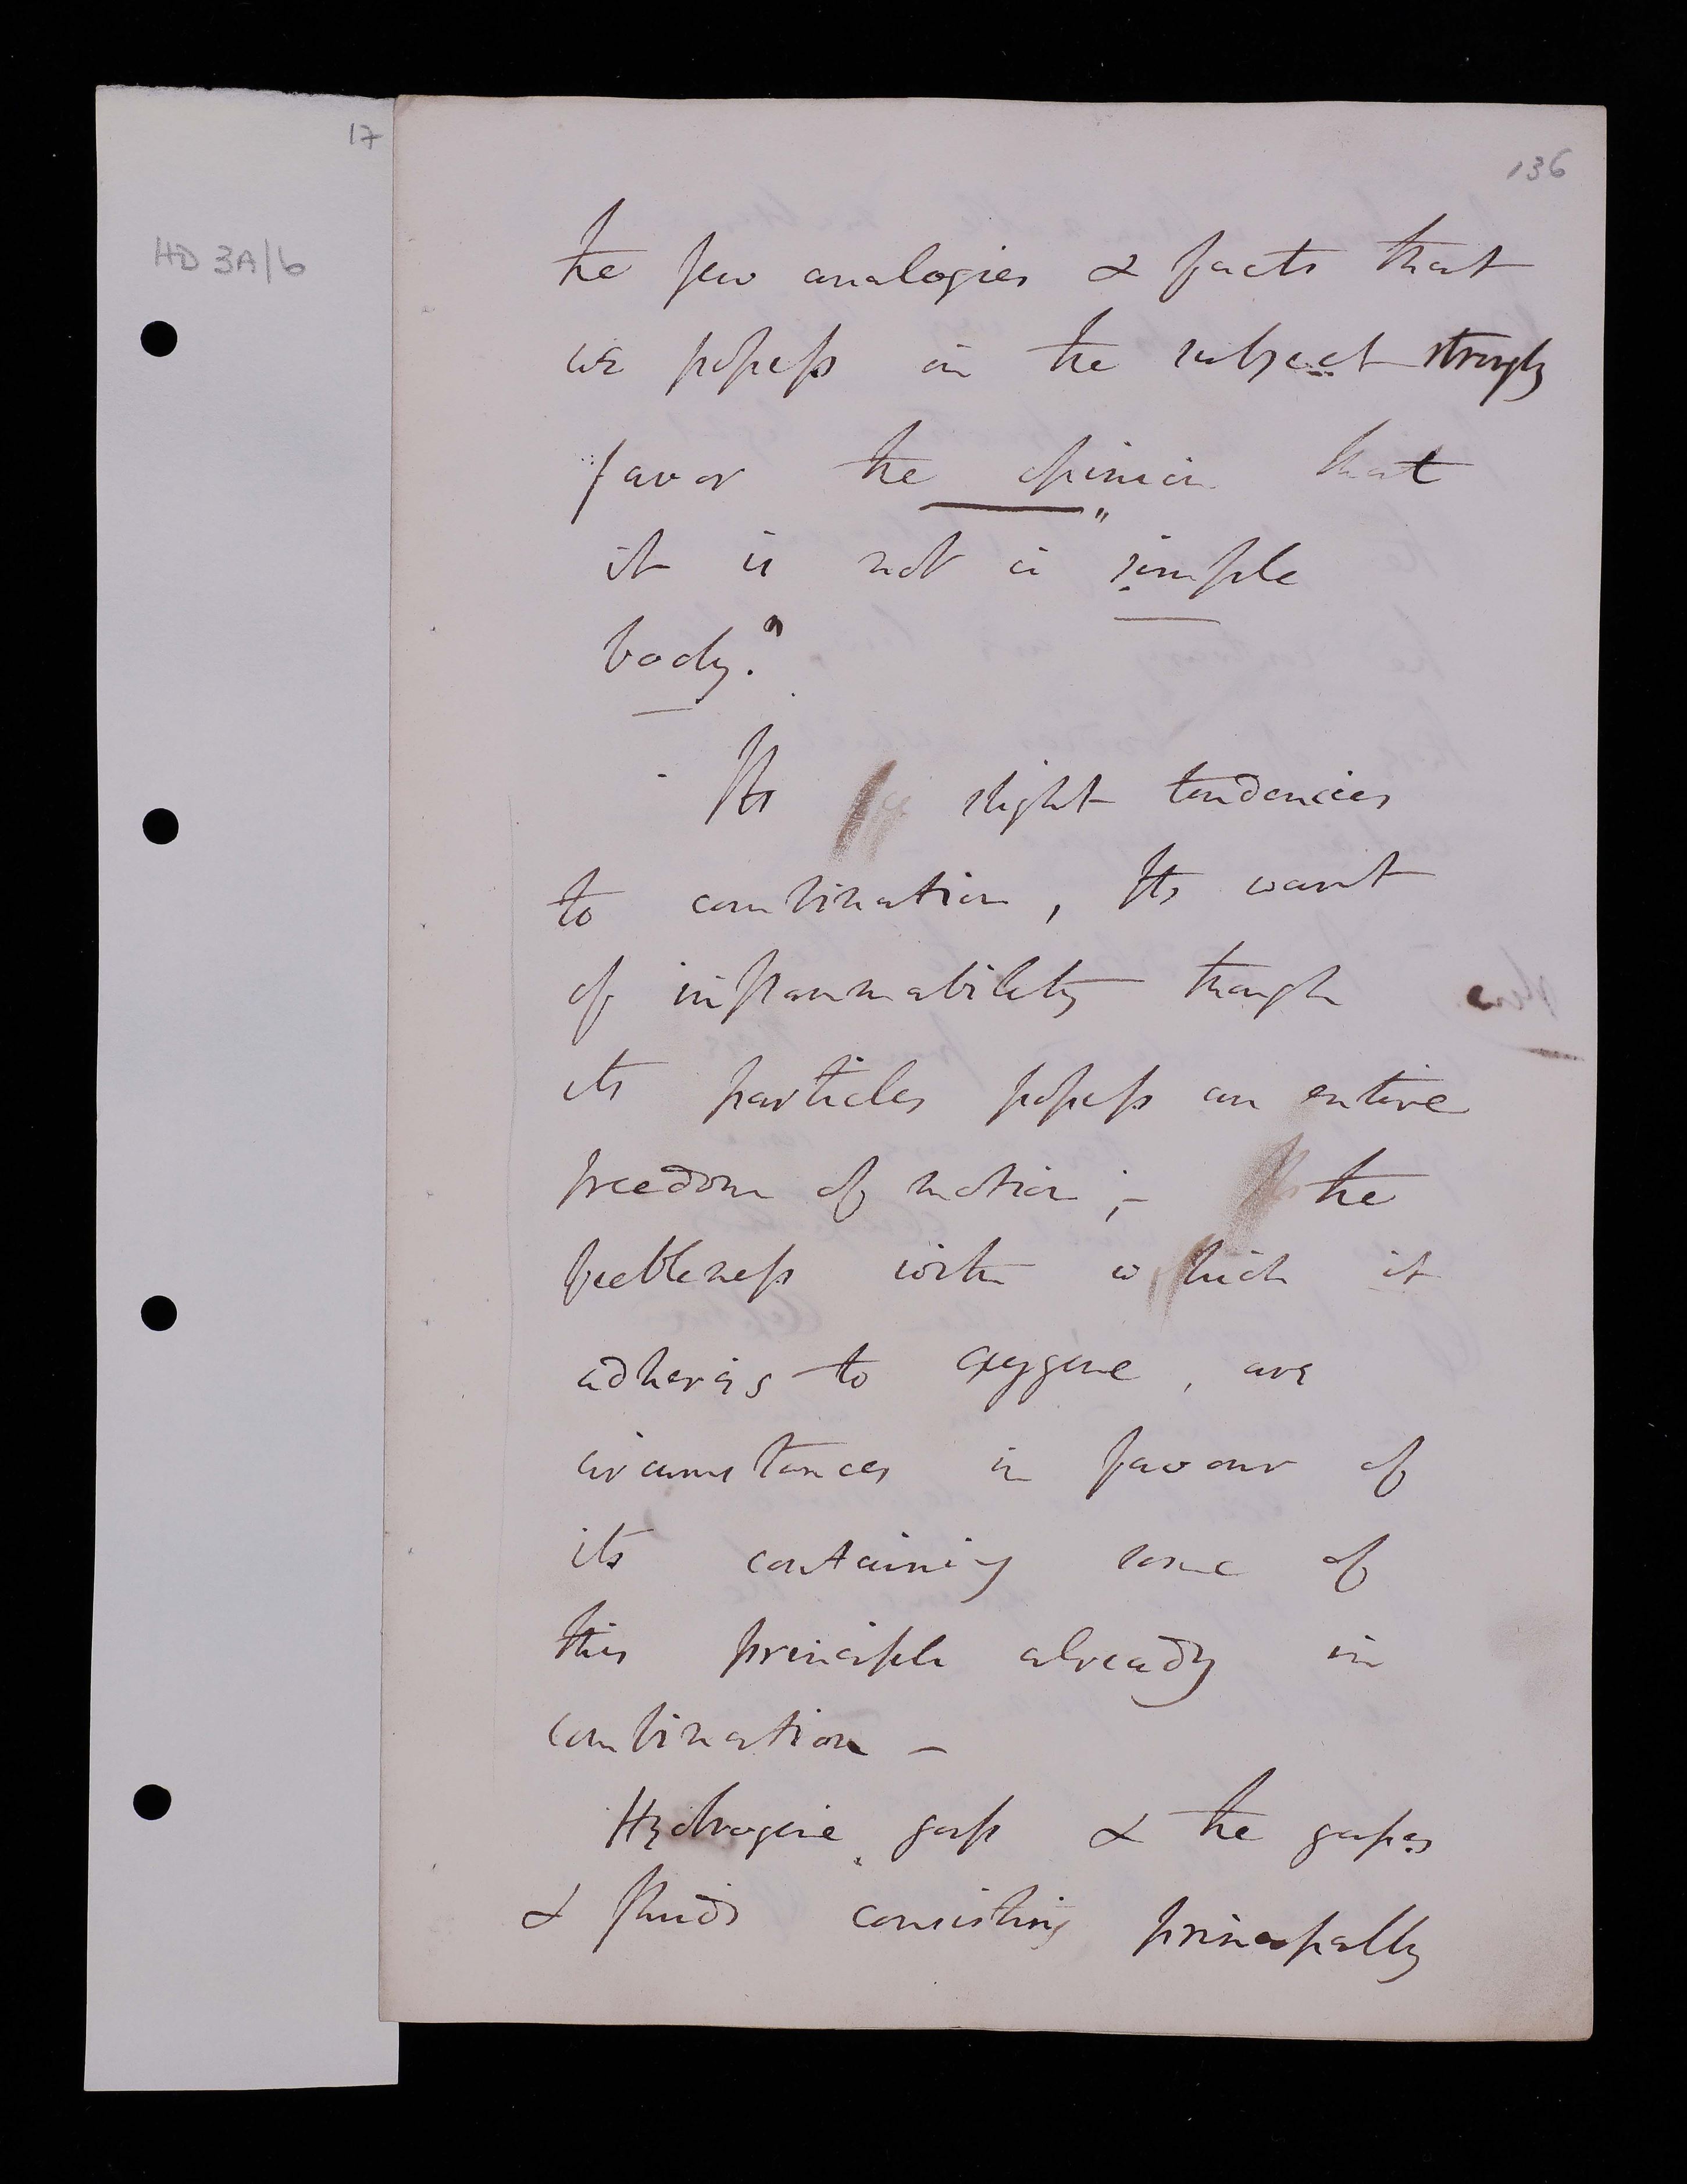 17
136
HD 3A/6
the few analogies & facts that
we possess on the subject strongly
favor the opinion that
it is not a "simple
body."
Its slight tendencies
to combination, Its want
of inflammability though
its particles possess an entire
freedom of motion;- the
feebleness with which it
adheres to oxygene, are
circumstances in favour of
its containing some of
this principle already in
combination -
Hydrogene gass & the gasses
& fluids consisting principally